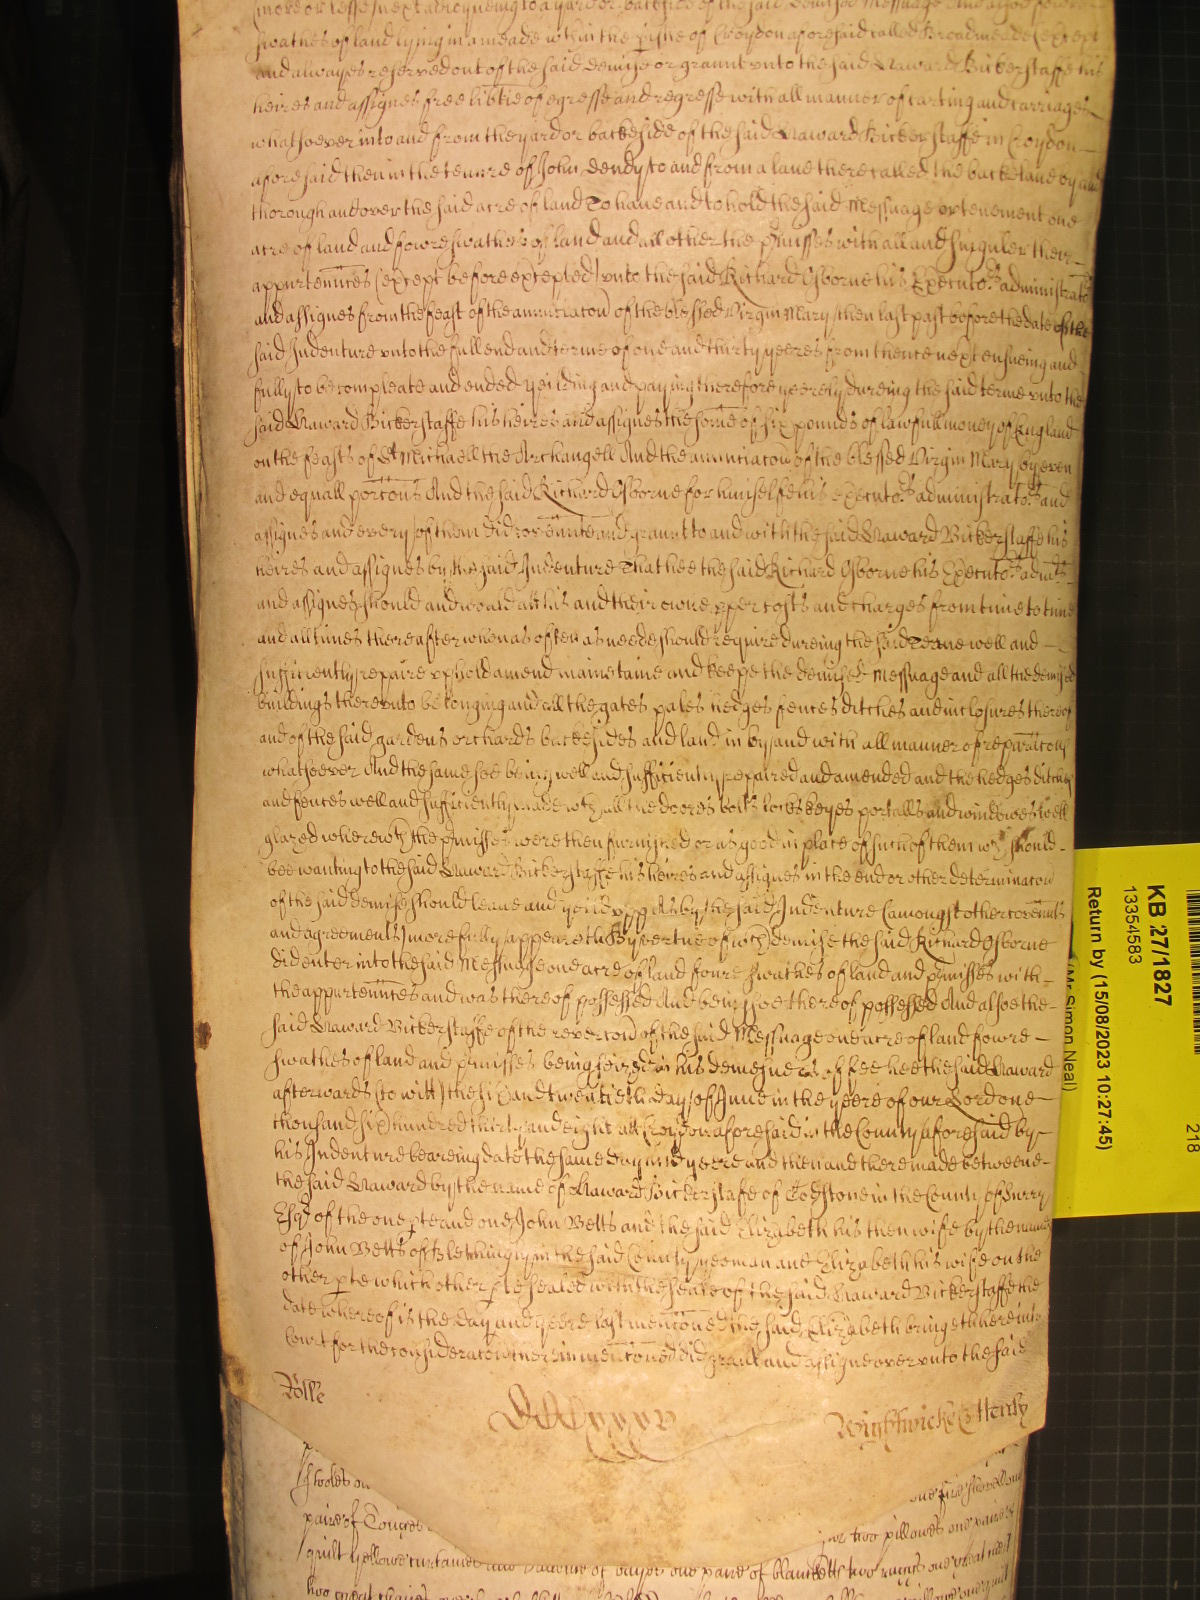 (more or lesse) next adioyneing to a yard or backside of the said demised Messuage And alsoe fowre
swathes of land lying in a meade within the pishe of Croydon aforesaid called Broadmeade (except
and alwayes reserved out of the said demise or graunt unto the said Haward Bickerstaffe his
heires and assignes free libtie of egresse and regresse with all manner of carting and carriages
whatsoever into and from the yard or backeside of the said Haward Bickerstaffe in Croydon
aforesaid then in the tenure of John Dendy to and from a lane there called the backe lane by and
thorough and over the said acre of land To have and to hold the said Messuage or tenement one
acre of land and fowre swathes of land and all other the pmisses with all and singuler their
appurtennces (except before excepted) unto the said Richard Osborne his Executors administrators
and assignes from the feast of the annunciacon of the blessed Virgin Mary then last past before the date of the
said Indenture unto the full end and terme of one and thirty yeeres from thence next ensueing and
fully to be compleate and ended yeilding and paying therefore yeerely dureing the said terme unto the
said Haward Bickerstaffe his heires and assignes the some of six pounds of lawfull money of England
on the feasts of St Michaell the Archangell And the annunciacon of the blessed Virgin Mary by even
and equall porcons And the said Richard Osborne for himselfe his executors administrators and
assignes and every of them did covennte and graunt to and with the said Haward Bickerstaffe his
heires and assignes by the said Indenture That hee the said Richard Osborne his Executors admrs
and assignes should and would att his and their owne pper costs and charges from time to time
and all times thereafter when as often as neede should require dureing the said Terme well and
sufficiently repaire uphold amend mainetaine and keepe the demised Messuage and all the demised
buildings thereunto belonging and all the gates pales hedges fences ditches and inclosures thereof
and of the said gardens orchards backesides and land in by and with all manner of reparacons
whatsoever And the same soe being well and sufficiently repaired and amended and the hedges ditches
and fences well and sufficiently made wth all the doores bolts lockes keyes portalls and windowes well
glazed wherewth the pmisses were then furnished or as good in place of such of them wch should
bee wanting to the said Haward Bickerstaffe his heires and assignes in the end or other determinacon
of the said demise should leave and yeild upp As by the said Indenture (amongst other covennts
and agreements) more fully appeareth By vertue of wch demise the said Richard Osborne
did enter into the said Messuage one acre of land foure swathes of land and pmisses with
the appurtennces and was thereof possessed And being soe thereof possessed And alsoe the
said Haward Bickerstaffe of the revercon of the said Messuage one acre of land fowre
swathes of land and pmisses being seized in his demesne as of fee hee the said Haward
afterwards (to witt) the six and twentieth day of June in the yeere of our Lord one
thousand six hundred thirty and eight att Croydon aforesaid in the County aforesaid by
his Indenture beareing date the same day and yeere and then and there made betweene
the said Haward by the name of Haward Bickerstafe of Codstone in the County of Surry
Esqr of the one pte and one John Betts and the said Elizabeth his then wife by the names
of John Betts of Bletchingly in the said County yeoman and Elizabeth his wife on the
other pte which other pte sealed with the seale of the said Haward Bickerstaffe the
date whereof is the day and yeere last menconed the said Elizabeth brings here into
Court for the consideracon therein menconed did graunt and assigne over unto the said
Rolle
Wightwicke & Henly
stooles
one fire shovell one
paire of Tonges
two pillowes one paire
quilt yellowe curtaines and valance of one paire of blanketts two ruggs one
two great chaires
KB 27/1827
13354583
Return by (15/08/2023 10:27:45)
(Mr Simon Neal)
218